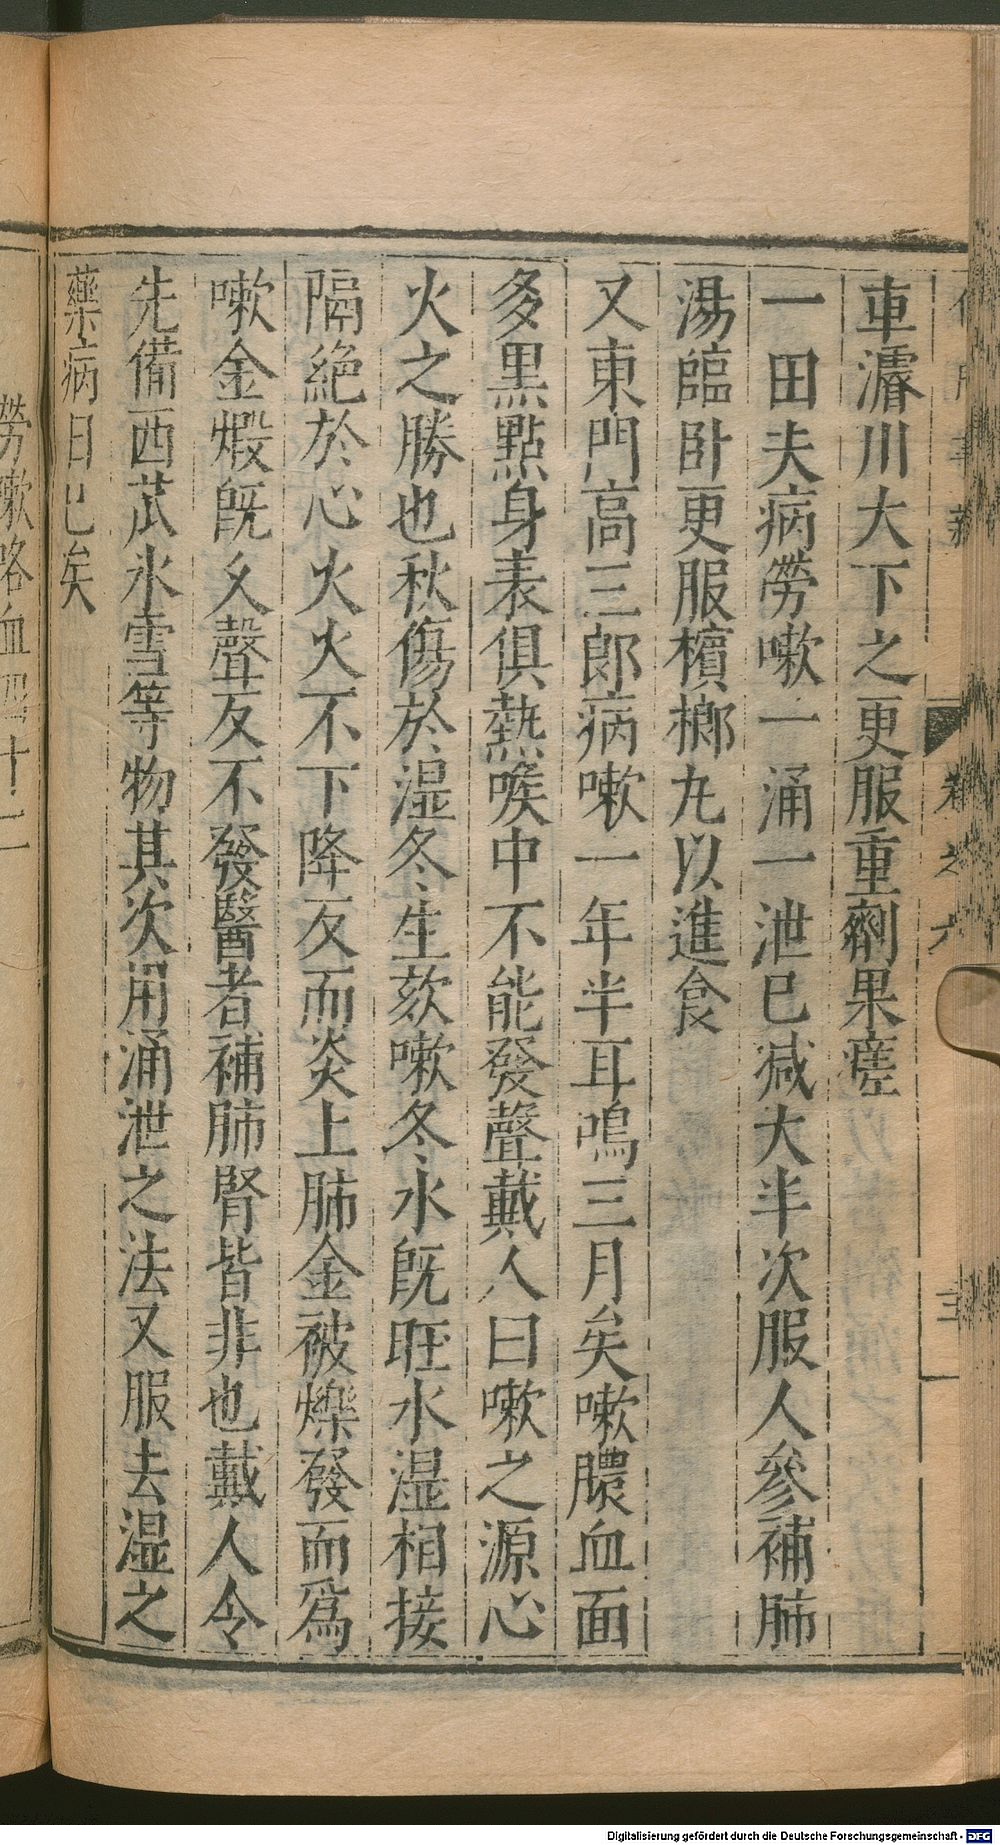 卷之六
三
車濬川大下之更服重劑果瘥
一田夫病勞嗽一涌一泄已減大半次服人參補肺
湯臨卧更服檳榔丸以進食
又東門高三郎病嗽一年半耳鳴三月矣嗽膿血面
多黒點身表俱熱喉中不能發聲戴人曰嗽之源心
火之勝也秋傷於湿冬生欬嗽冬水既旺水湿相接
隔絶於心火火不下降反而炎上肺金被爍發而爲
嗽金煅既乆聲反不發醫者補肺腎皆非也戴人令
先備西苽氷雪等物其次用涌泄之法又服去湿之
藥病日已矣
勞嗽咯血四十二
Digitalisierung gefördert durch die Deutsche Forschungsgemeinschaft - DFG